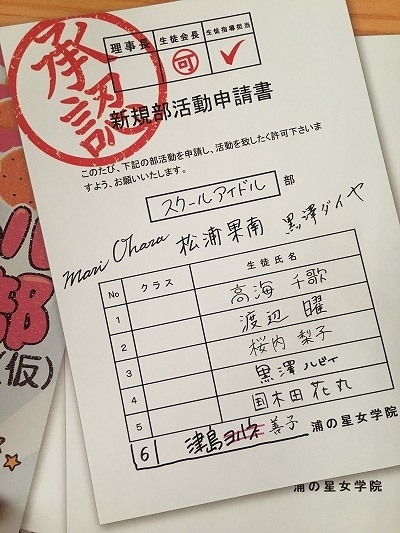 承認
理事長 生徒会長 生徒指導担当
可 ✓
新規部活動申請書
このたび、下記の部活動を申請し、活動を致したく許可下さいま
すよう、お願いいたします。
スクールアイドル 部
Mari Ohara 松浦果南 黒澤ダイヤ
No クラス 生徒氏名
1 高海 千歌
2 渡辺 曜
3 桜内 梨子
4 黒澤 ルビィ
5 国木田 花丸
6 津島 ヨハネ 善子
浦の星女学院
浦の星女学院
ル
部
(仮)